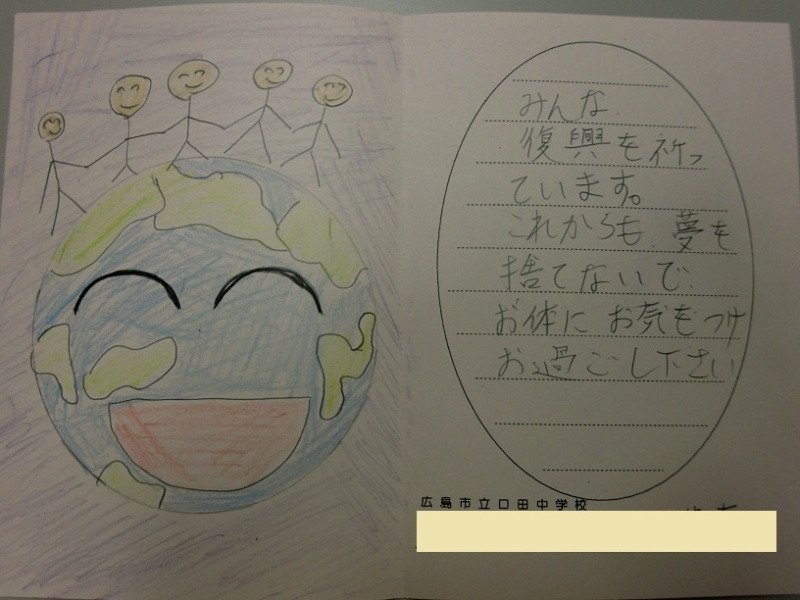 みんな
復興を祈っ
ています。
これからも 夢を
捨てないで
お体に お気をつけ
お過ごし下さい
広島市立口田中学校